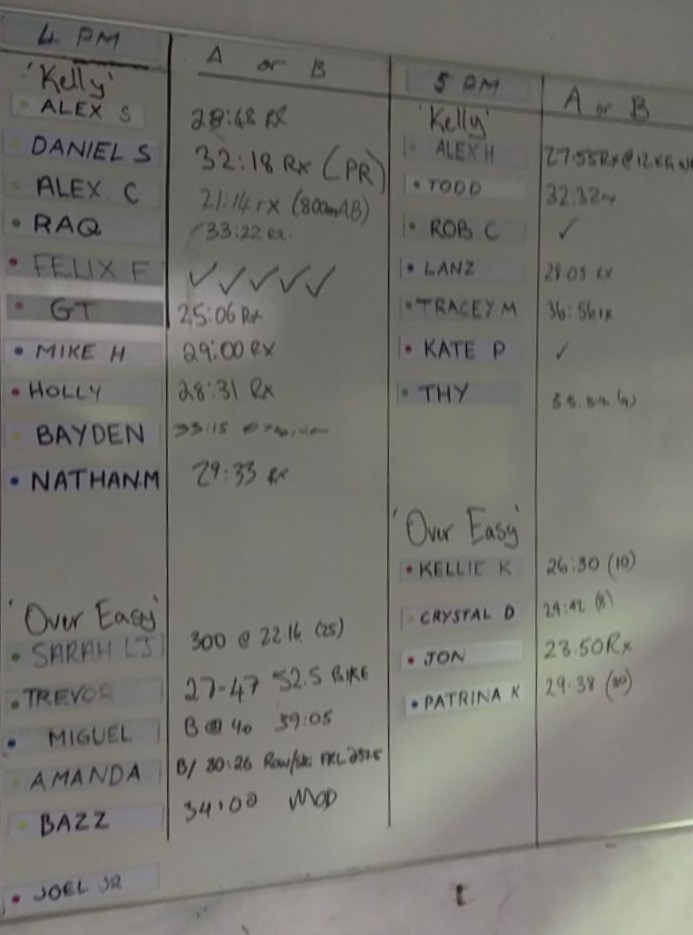 4 PM
A or B
'Kelly'
ALEX S 28:48 RX
DANIEL S 32:18 RX (PR)
ALEX C 21:14 rx (800m AB)
RAQ 33:22 rx.
FELIX F ✓✓✓✓✓
GT 25:06 Rx
MIKE H 29:00 RX
HOLLY 28:31 Rx
BAYDEN 33:15
NATHAN.M 29:33 RX
'Over Easy'
SARAH LJ 300 @ 22.16 (25)
TREVOR 27-47 52.5 BIKE
MIGUEL B @ 40 39:05
AMANDA B/ 30:26 Row/
BAZZ 34:00 MOD
JOEL JR
5 PM
A or B
'Kelly'
ALEX H 27:55 Rx @ 12 KG
TODD 32:32
ROB C ✓
LANZ 29:05 RX
TRACEY M 36:56 rx
KATE P ✓
THY
'Over Easy'
KELLIE K 26:30 (10)
CRYSTAL D 29:42 (8)
JON 23.50 Rx
PATRINA K 29.38